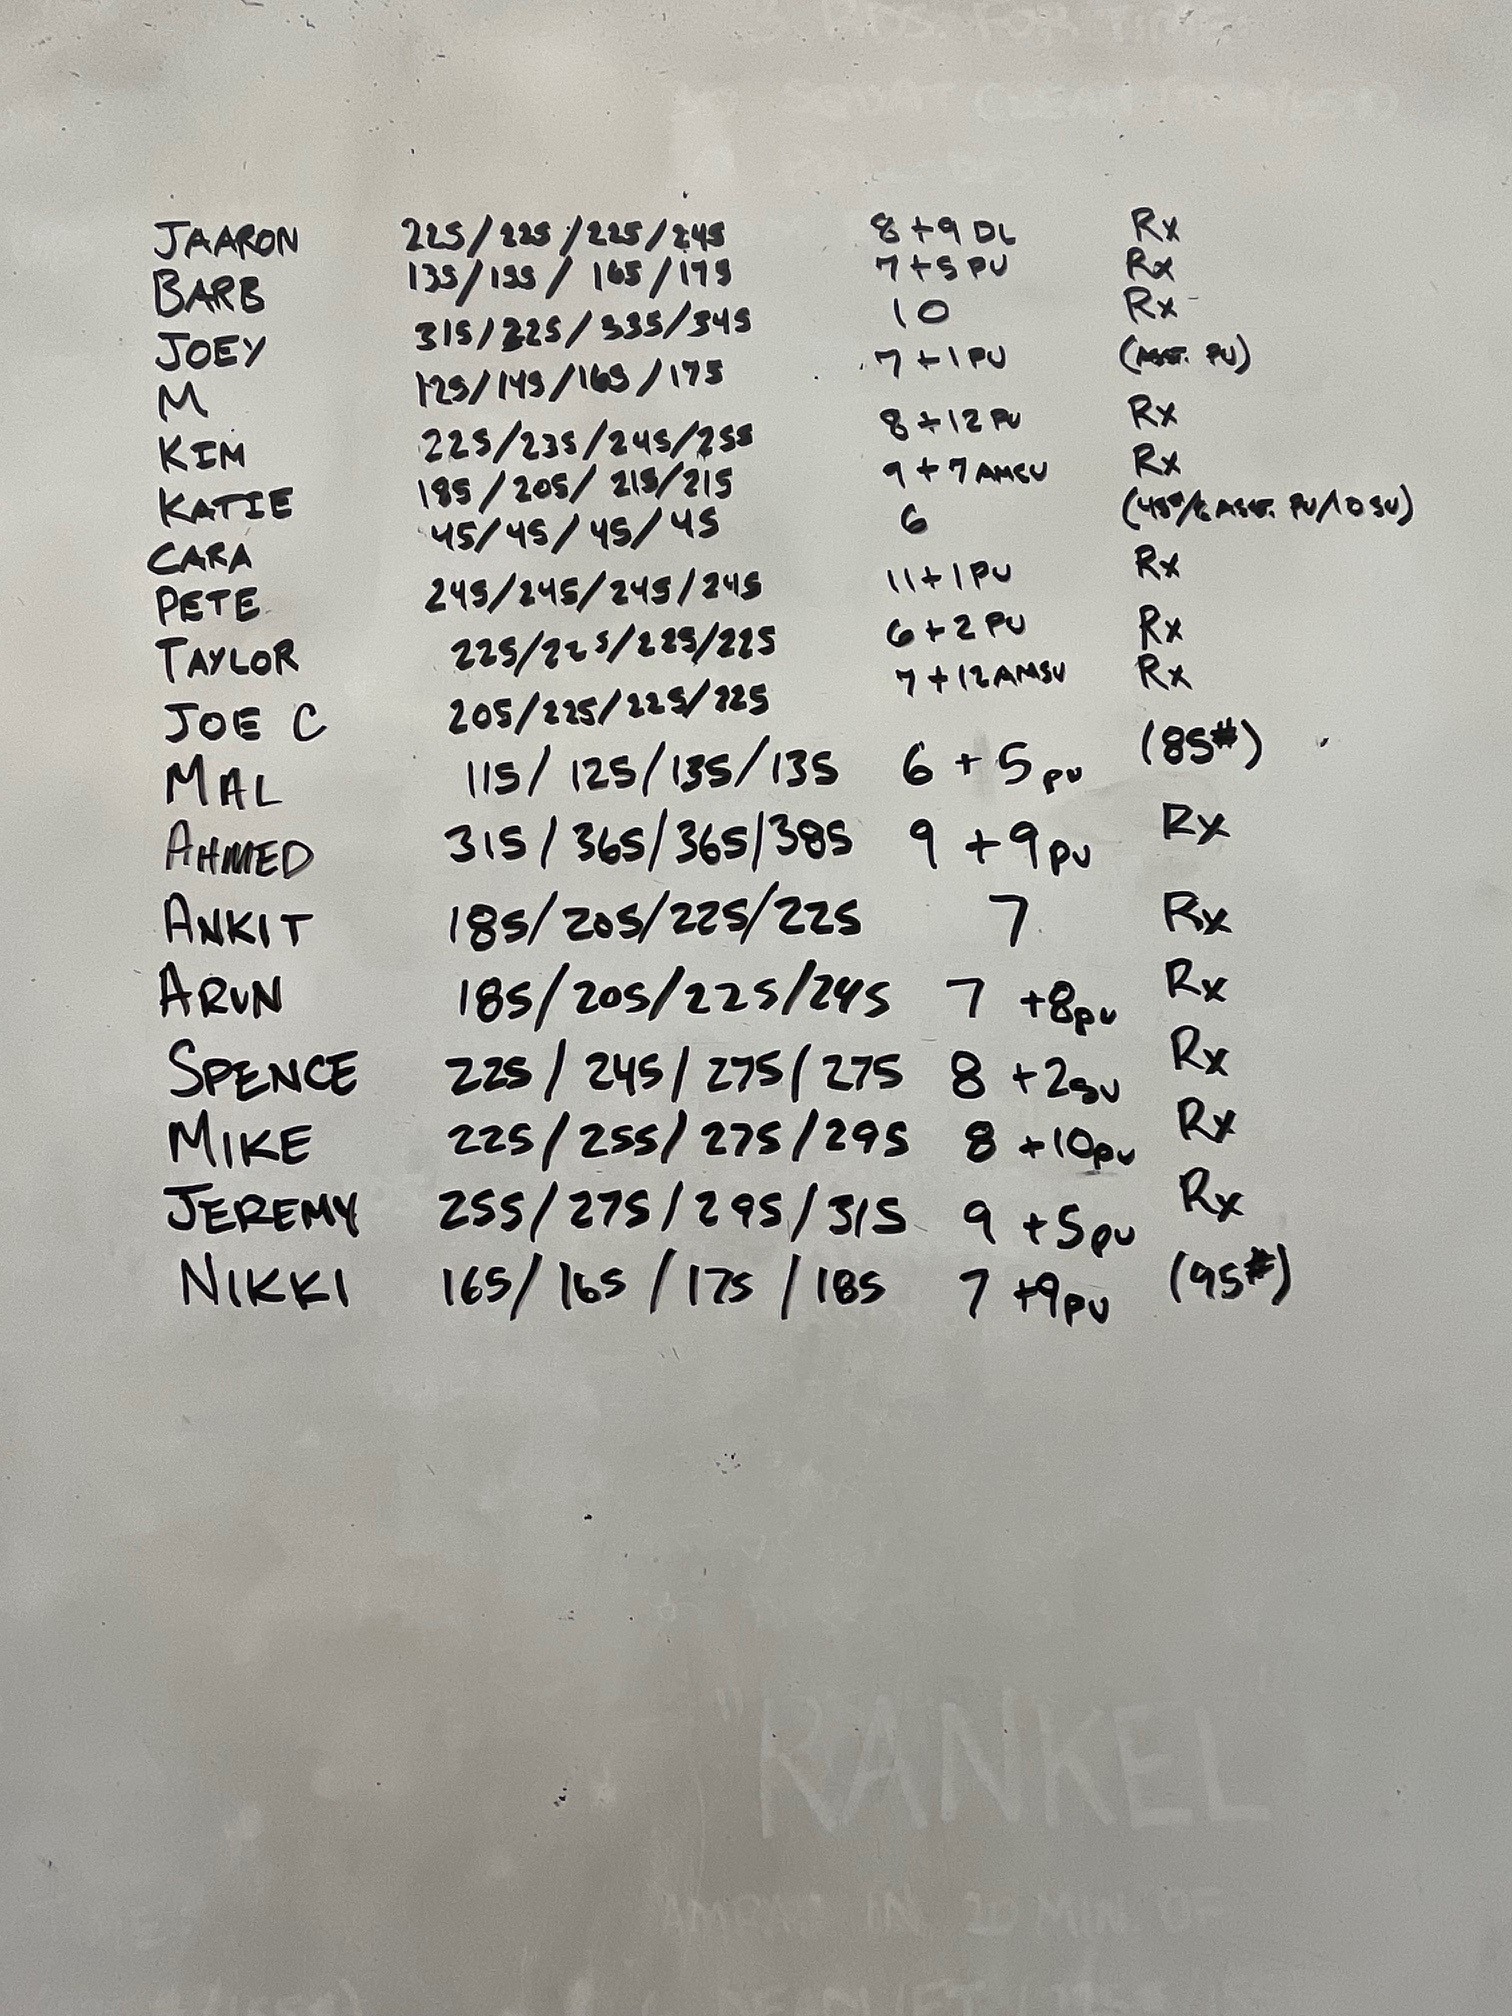 3 RDS. FOR TIME:
SQUAT CLEAN
JAARON 225/225/225/245 8+9 DL Rx
BARB 135/155/165/175 7+5 PU Rx
JOEY 315/325/335/345 10 Rx
M 125/145/165/175 7+1 PU (ASST. PU)
KIM 225/235/245/255 8+12 PU Rx
KATIE 185/205/215/215 9+7 AMSU Rx
CARA 45/45/45/45 6 (45#/6 ASST. PU/10 SU)
PETE 245/245/245/245 11+1 PU Rx
TAYLOR 225/225/225/225 6+2 PU Rx
JOE C 205/225/225/225 7+12 AMSU Rx
MAL 115/125/135/135 6+5 PU (85#)
AHMED 315/365/365/385 9+9 PU Rx
ANKIT 185/205/225/225 7 Rx
ARUN 185/205/225/245 7 +8 PU Rx
SPENCE 225/245/275/275 8 +2 SU Rx
MIKE 225/255/275/295 8 +10 PU Rx
JEREMY 255/275/295/315 9 +5 PU Rx
NIKKI 165/165/175/185 7 +9 PU (95#)
"RANKEL"
AMRAP IN 20 MIN. OF
DEADLIFT